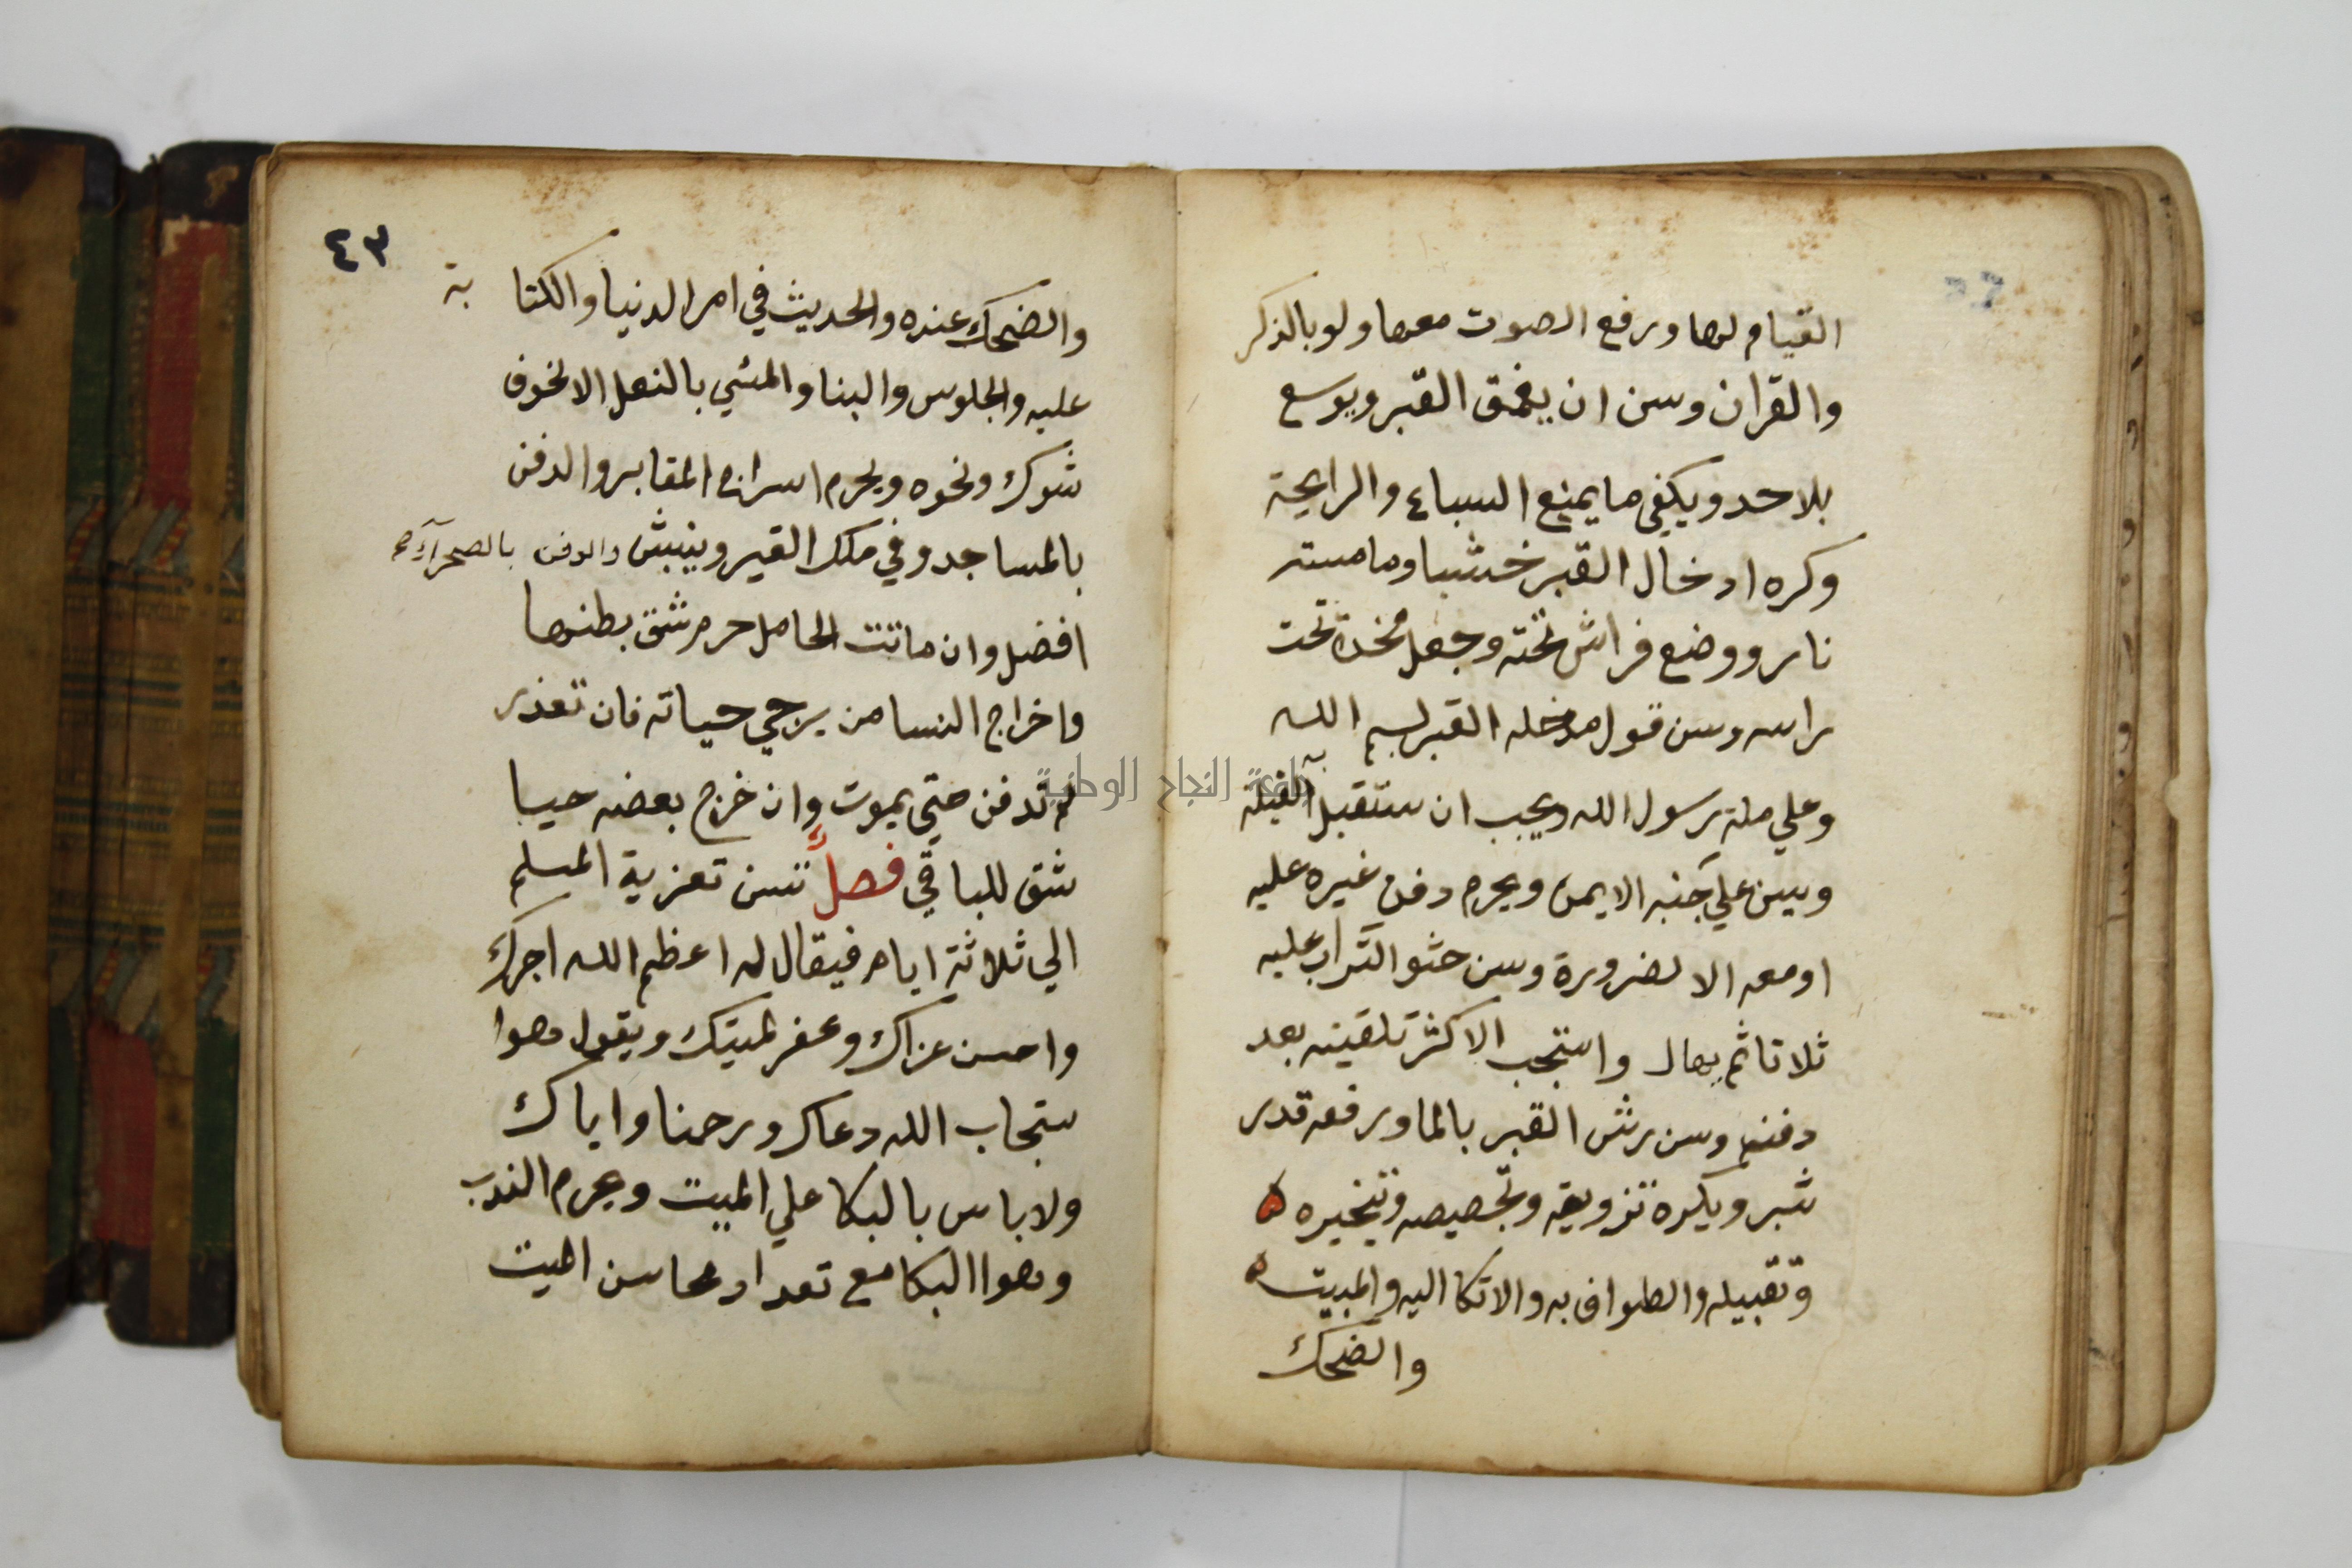 القيام لها ورفع الصوت معها ولو بالذكر
والقران وسن ان يعمق القبر ويوسع
بلا حد ويكفي ما يمنع السباع والرايحة
وكره ادخال القبر خشبا وما مسته
نار ووضع فراش تحته وجعل مخدة تحت
راسه وسن قول مدخله القبر بسم الله
وعلي ملة رسول الله ويجب ان ستقبل القبلة
ويسن علي جنبه الايمن ويحرم دفن غيره عليه
او معه الا لضرورة وسن حثو التراب عليه
ثلاثا ثم يهال واستحب الاكثر تلقينه بعد
دفنه وسن رش القبر بالما ورفعه قدر
شبر ويكره تزويقه وتجصيصه وتبخيره ه
وتقبيله والطواف به والاتكا اليه والمبيت ه
والضحك
٤٣
والضحك عنده والحديث في امر الدنيا والكتابة
عليه والجلوس والبنا والمشي بالنعل الا لخوف
شوك ونحوه ويحرم اسراج المقابر والدفن
بالمساجد وفي ملك الغير وينبش والدفن بالصحراء
افضل وان ماتت الحامل حرم شق بطنها
واخراج النسا من يرجي حياته فان تعذر
لم تدفن حتي يموت وان خرج بعضه حيا
شق للباقي فصل تسن تعزية المسلم
الي ثلاثة ايام فيقال له اعظم الله اجرك
واحسن عزاك وغفر لميتك ويقول وهوا
ستجاب الله دعاك ورحمنا واياك
ولا باس بالبكا علي الميت ويحرم الندب
وهوا البكا مع تعداد محاسن الميت
جامعة النجاح الوطنية